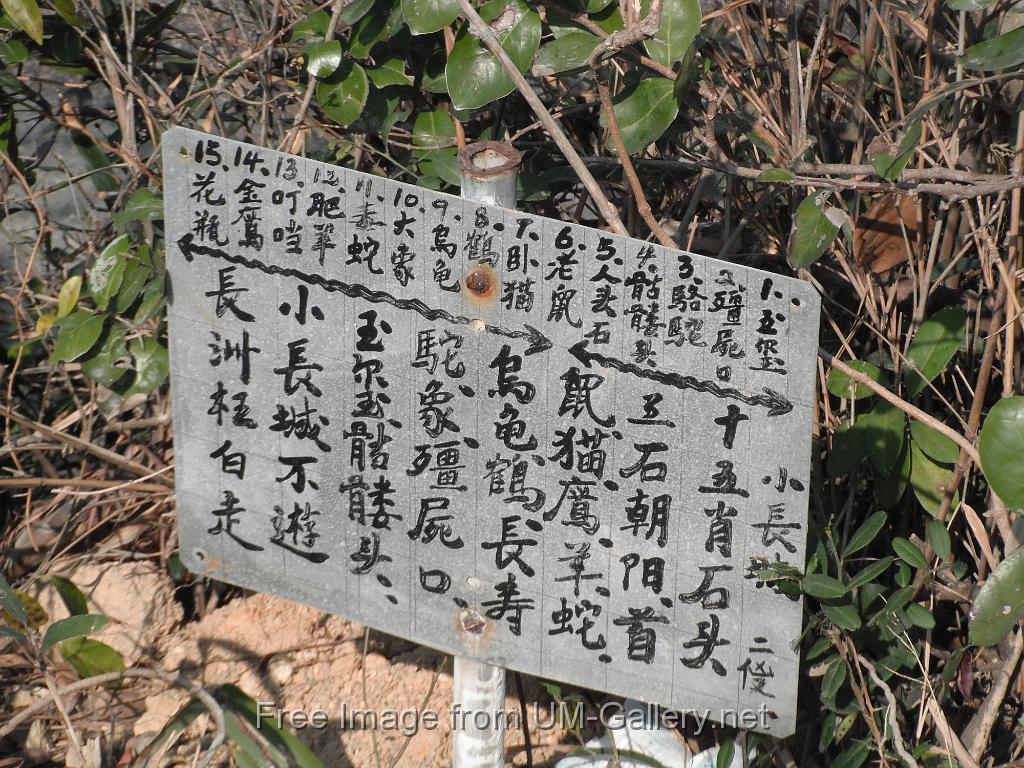 1. 玉玺
2. 殭屍口
3. 駱駝
4. 骷髏头
5. 人头石
6. 老鼠
7. 卧猫
8. 鶴
9. 烏龟
10. 大象
11. 毒蛇
12. 肥羊
13. 叮噹
14. 金鹰
15. 花瓶
小長城
十五肖石头
兰石朝阳、首
鼠、猫、鹰、羊、蛇、
烏龟、鶴、長寿
駝、象、殭屍口、
玉尔玉、骷髏头、
小長城不遊
長洲枉白走
Free Image from UM-Gallery.net